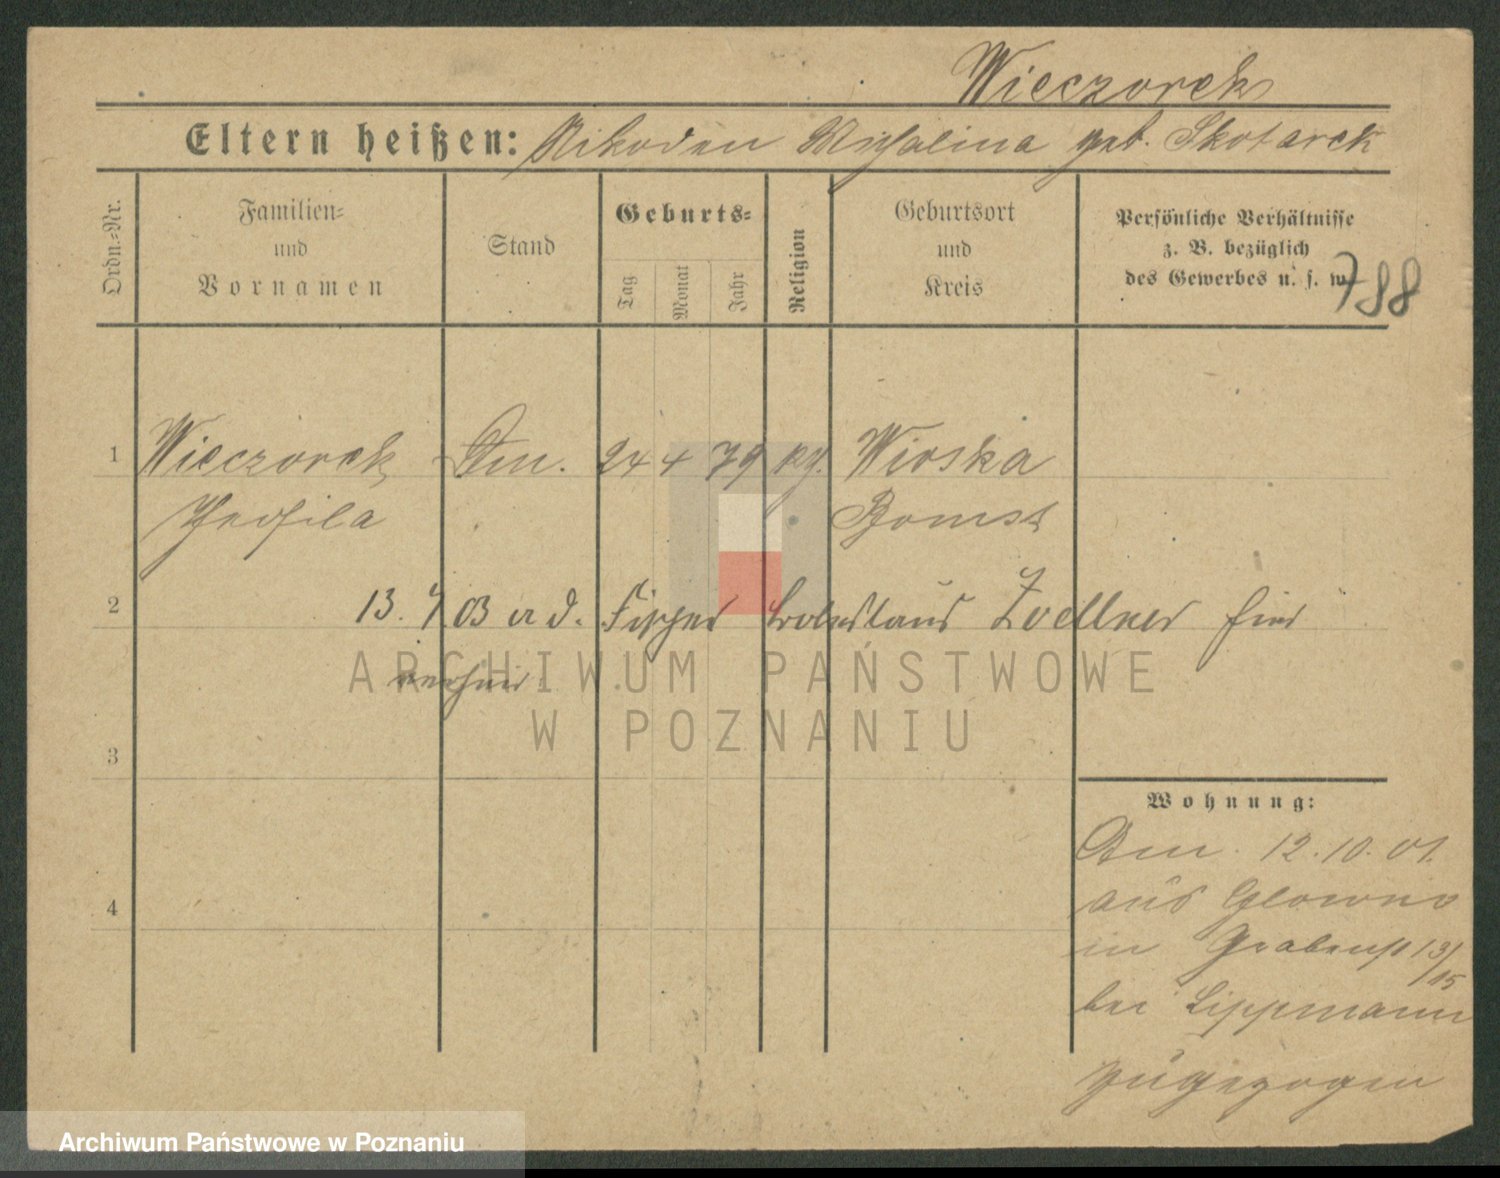 Wieczorek
Eltern heißen: Nikodem Michalina geb. Skotarek
Ordn.-Nr.
Familien-
und
Vornamen
Stand
Geburts-
Tag
Monat
Jahr
Religion
Geburtsort
und
Kreis
Persönliche Verhältnisse
z. B. bezüglich
des Gewerbes u. s. w.
788
1 Wieczorek Dm. 24 4 79 kg. Wioska
Theofila Bomst
2 13. 4. 03 a d. Boleslaus Zoellner hier
verheir.
ARCHIWUM PAŃSTWOWE
W POZNANIU
3
Wohnung:
12.10.01.
aus Glowno
4
in Grabenst 13/15
bei Lippmann
zugezogen
Archiwum Państwowe w Poznaniu